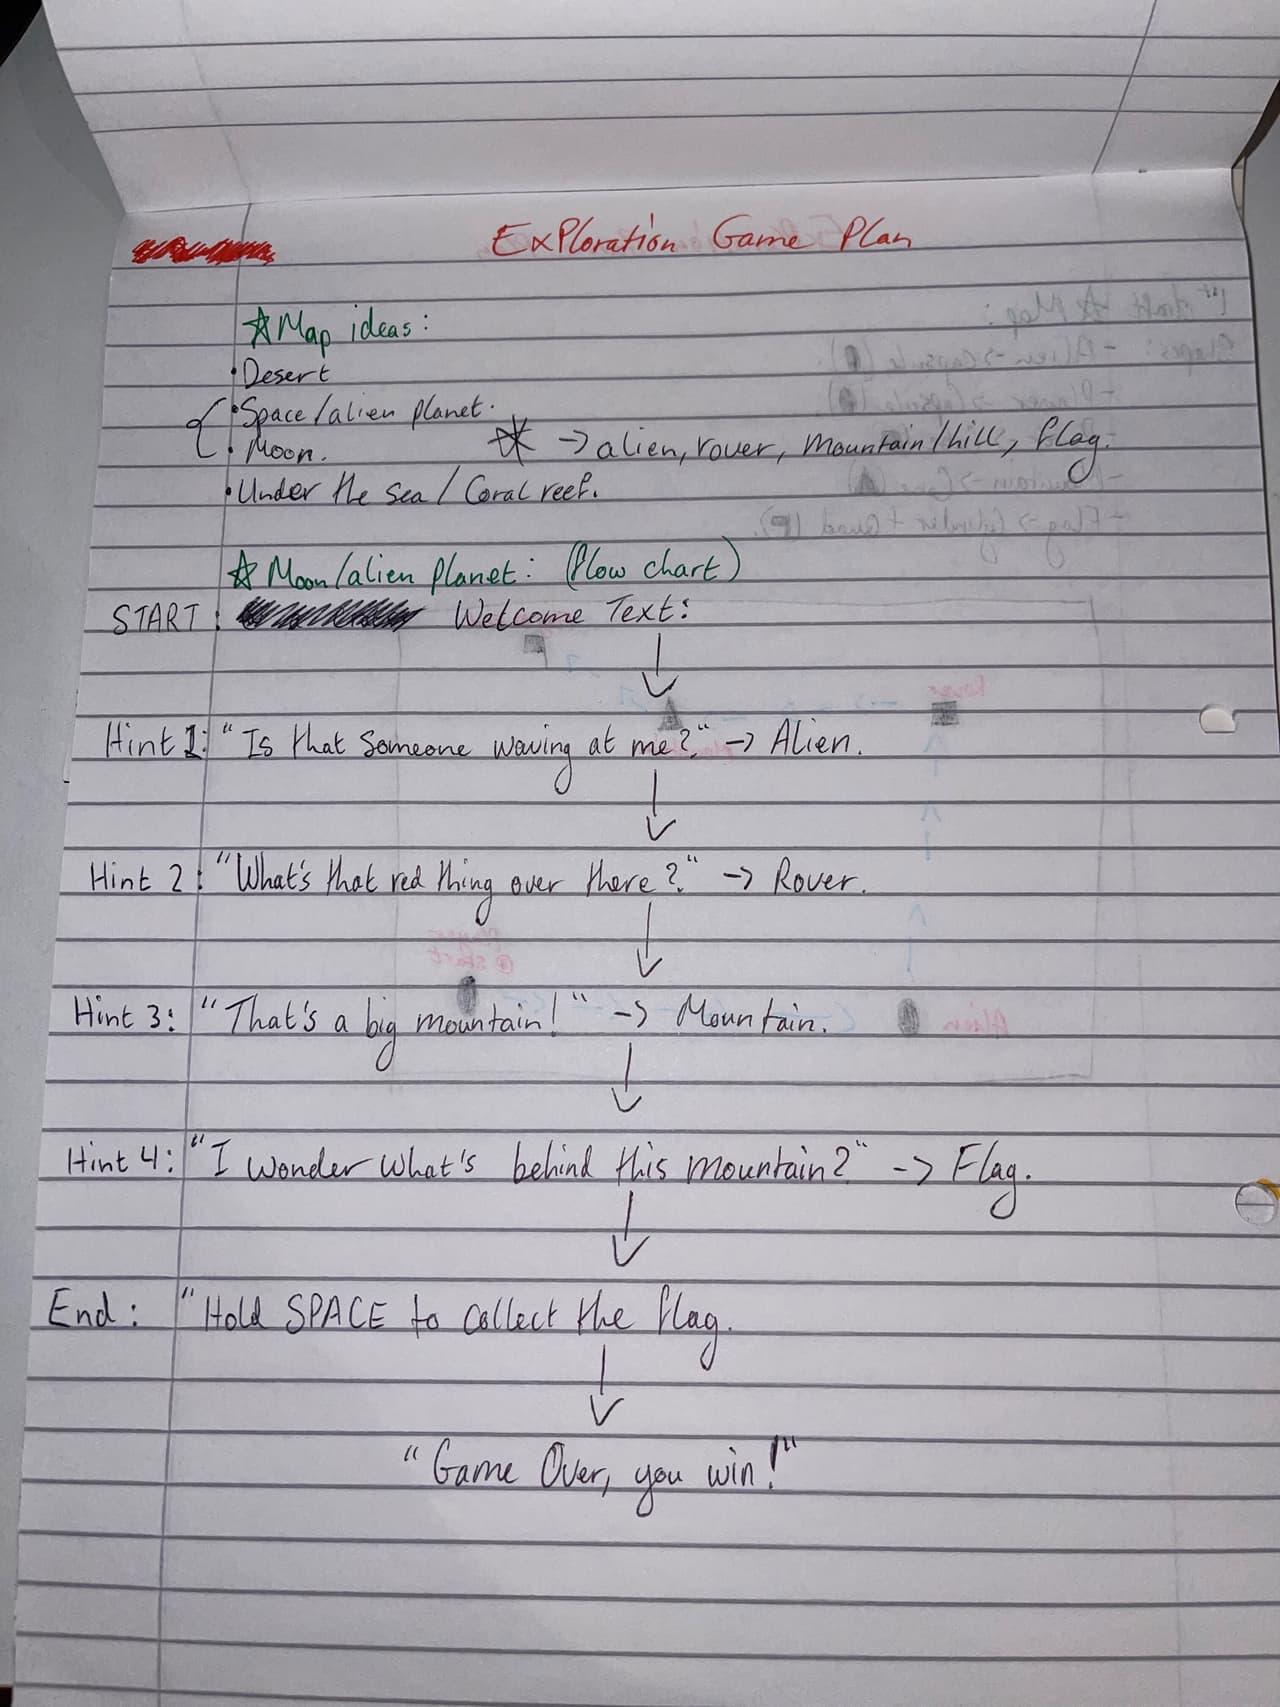 Exploration Game Plan
☆ Map ideas:
• Desert
• Space/alien planet.
• Moon. ☆ -> alien, rover, mountain/hill, flag.
• Under the sea / Coral reef.
☆ Moon/alien planet: (flow chart)
START: Welcome Text:
Hint 1: "Is that someone waving at me?" -> Alien.
Hint 2: "What's that red thing over there?" -> Rover.
Hint 3: "That's a big mountain!" -> Mountain.
Hint 4: "I wonder what's behind this mountain?" -> Flag.
End: "Hold SPACE to collect the flag.
"Game Over, you win!"